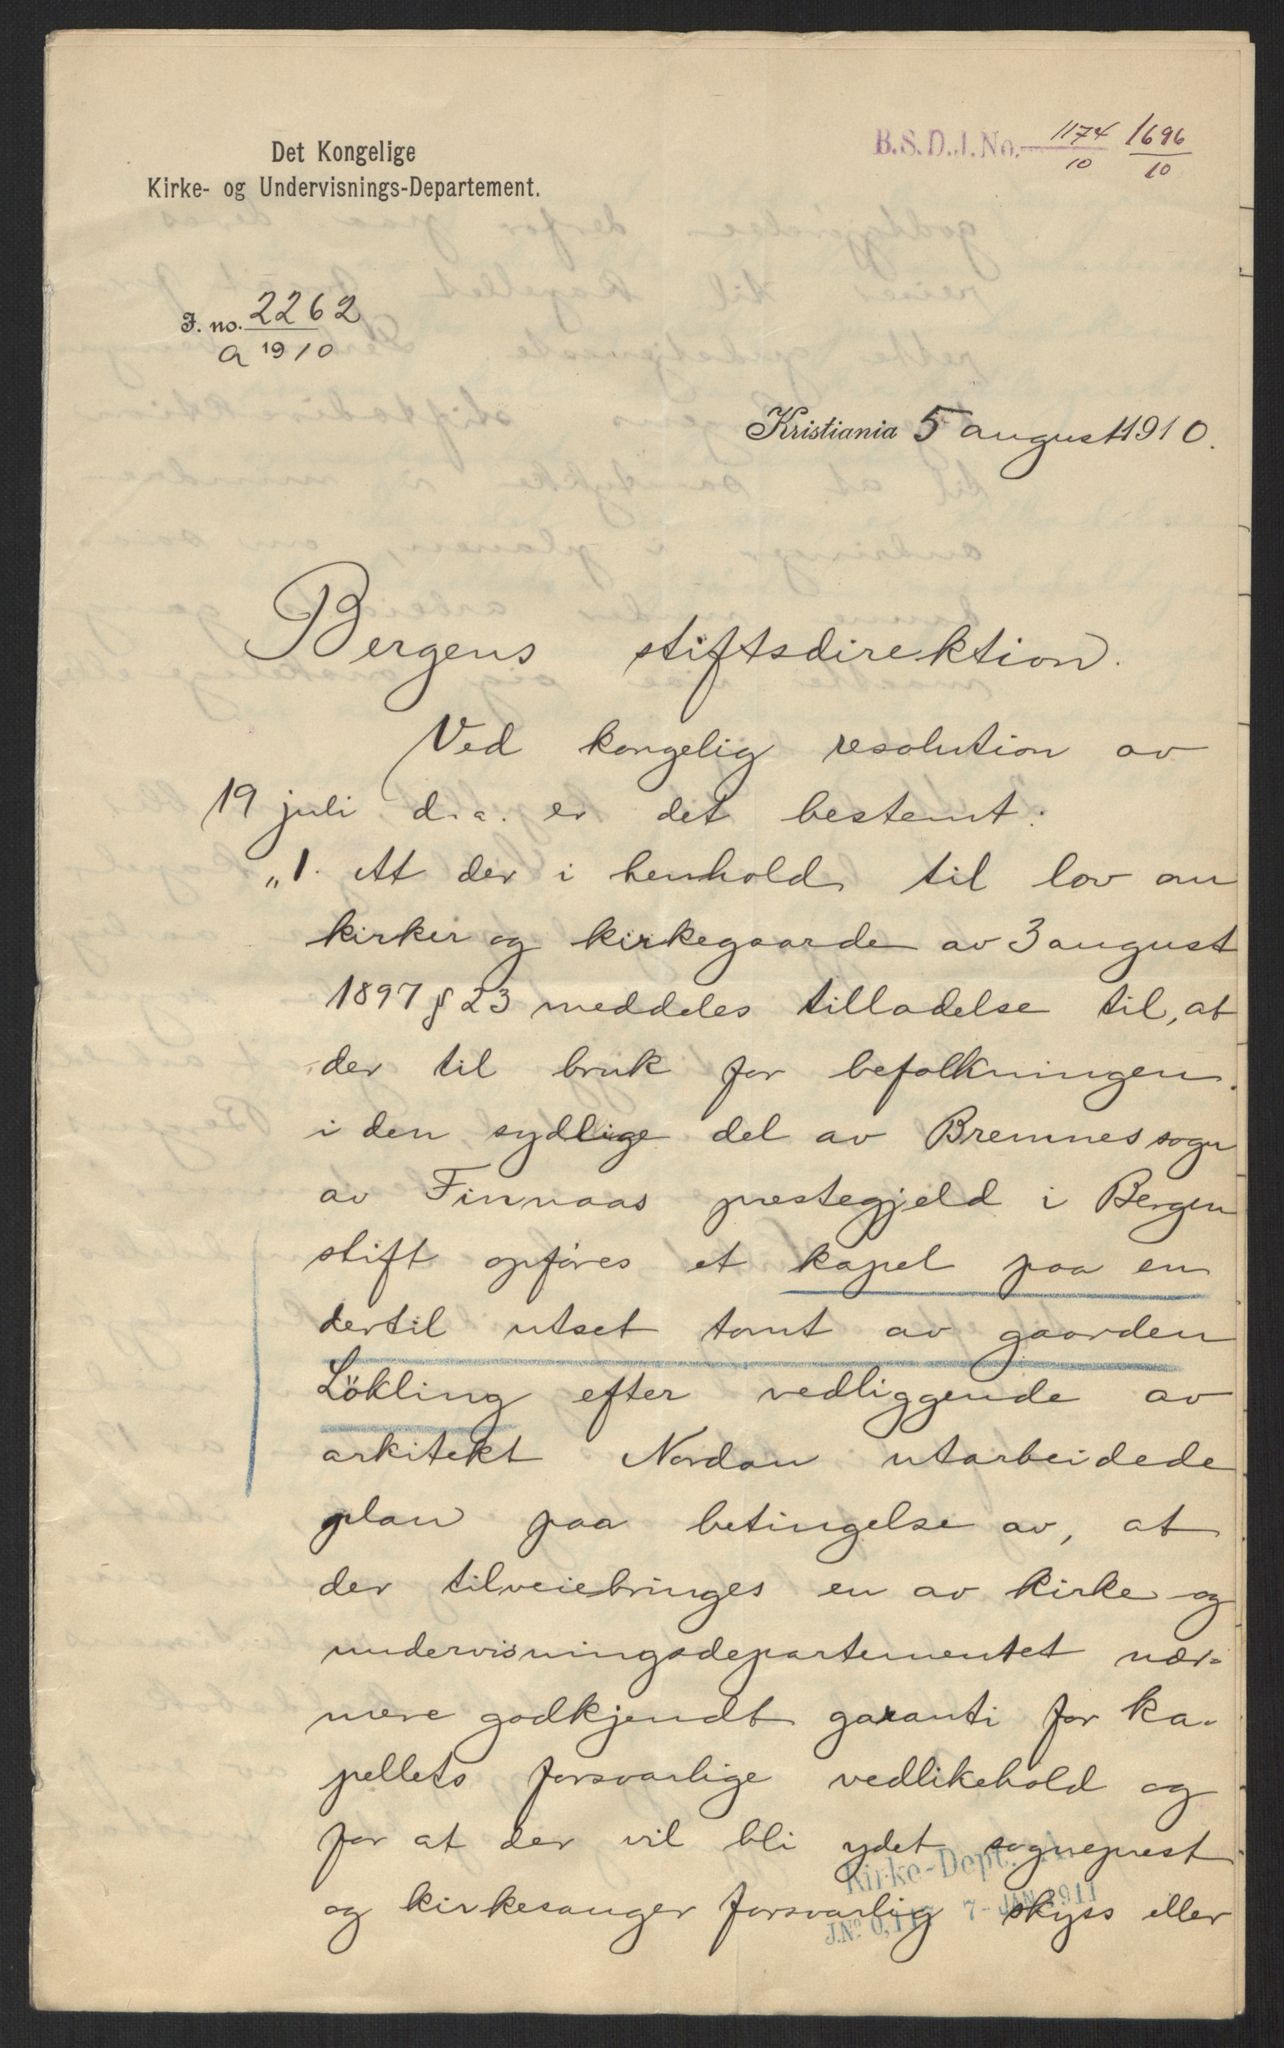 Det Kongelige
Kirke- og Undervisnings-Departement.
B.S.D.J.No. 1174/10 1696/10
J. no. 2262
a 1910
Kristiania 5 august 1910.
Bergens stiftsdirektion.
Ved kongelig resolution av
19 juli d.a. er det bestemt:
„1. At der i henhold til lov om
kirker og kirkegaarde av 3 august
1897 § 23 meddeles tilladelse til, at
der til bruk for befolkningen
i den sydlige del av Bremnes sogn
av Finnaas prestegjeld i Bergen
stift opføres et kapel paa en
dertil utset tomt av gaarden
Lökling efter vedliggende av
arkitekt Nordan utarbeidede
plan paa betingelse av, at
der tilveiebringes en av kirke og
undervisningsdepartementet nær-
mere godkjendt garanti for ka-
pellets forsvarlige vedlikehold og
for at der vil bli ydet sogneprest
og kirkesanger forsvarlig skyss eller
Kirke-Dept.
J.No. 7-JAN.1911